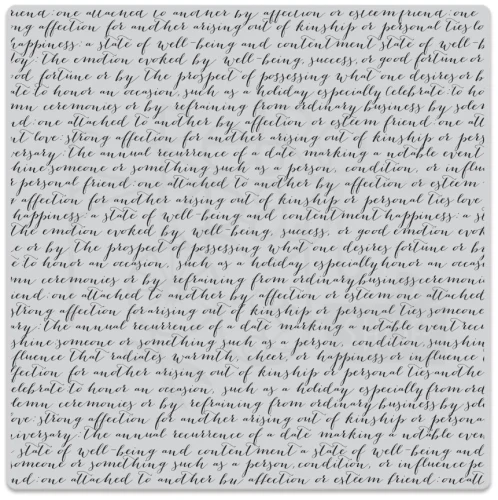 riend: one attached to another by affection or esteem friend: one
ng affection for another arising out of kinship or personal ties lo
happiness: a state of well-being and contentment state of well-b
joy: the emotion evoked by well-being, success, or good fortune or
od fortune or by the prospect of possessing what one desires or b
ate to honor an occasion, such as a holiday especially celebrate to ho
mn ceremonies or by refraining from ordinary business by solem
nd: one attached to another by affection or esteem friend: one att
nt love: strong affection for another arising out of kinship or pers
versary: the annual recurrence of a date marking a notable event
hine someone or something such as a person, condition, or influ
r personal friend: one attached to another by affection or esteem
s affection for another arising out of kinship or personal ties love
happiness: a state of well-being and contentment happiness: a st
the emotion evoked by well-being, success, or good emotion evok
e or by the prospect of possessing what one desires fortune or by
e to honor an occasion, such as a holiday especially honor an occas
mn ceremonies or by refraining from ordinary business ceremoni
iend: one attached to another by affection or esteem one attached
strong affection for arising out of kinship or personal ties someone
ary: the annual recurrence of a date marking a notable event recu
shine someone or something such as a person, condition, sunshin
fluence that radiates warmth, cheer, or happiness or influence
fection for another arising out of kinship or personal ties and the
elebrate to honor an occasion, such as a holiday especially from ord
lemn ceremonies or by refraining from ordinary business by sole
ove: strong affection for another arising out of kinship or persona
niversary: the annual recurrence of a date marking a notable even
state of well-being and contentment a state of well-being and
omeone or something such as a person, condition, or influence pe
nd: one attached to another by affection or esteem friend: one att